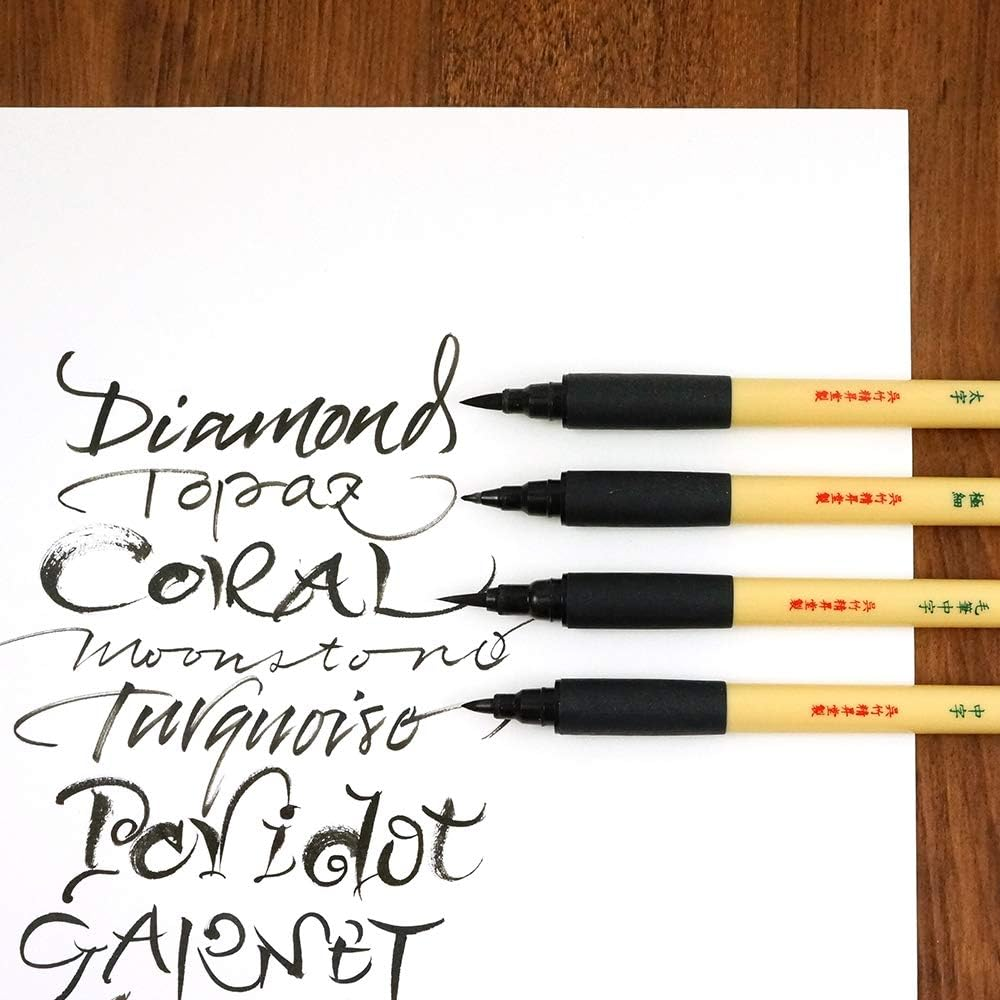 Diamond
Topaz
CORAL
Moonstone
Turquoise
Peridot
GARNET
太字 呉竹精昇堂製
極細 呉竹精昇堂製
毛筆中字 呉竹精昇堂製
中字 呉竹精昇堂製